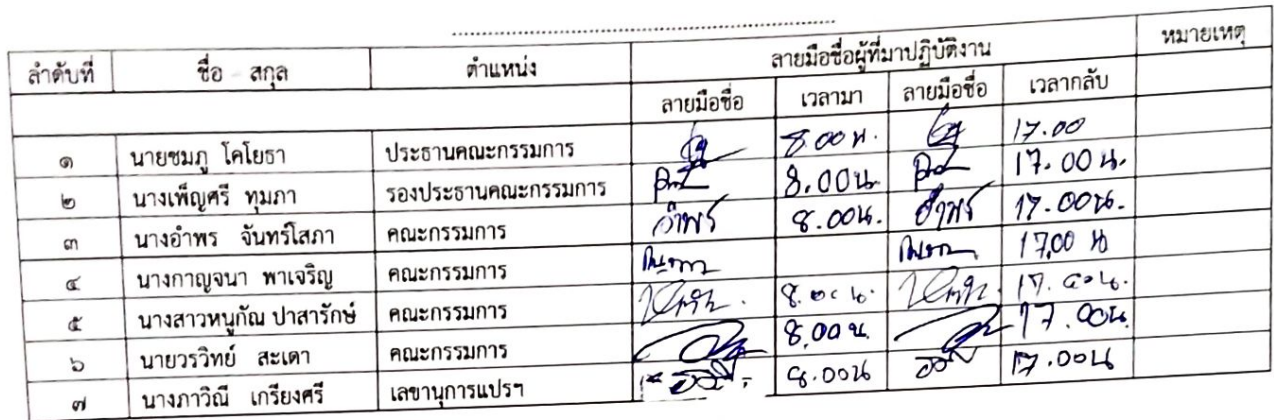 ลำดับที่ ชื่อ - สกุล ตำแหน่ง ลายมือชื่อผู้ที่มาปฏิบัติงาน หมายเหตุ
ลายมือชื่อ เวลามา ลายมือชื่อ เวลากลับ
๑ นายชมภู โคโยธา ประธานคณะกรรมการ 8.00 น. 17.00
๒ นางเพ็ญศรี ทุมภา รองประธานคณะกรรมการ 8.00น 17.00 น.
๓ นางอำพร จันทร์โสภา คณะกรรมการ อำพร 8.00น. อำพร 17.00น.
๔ นางกาญจนา พาเจริญ คณะกรรมการ 17.00 น
๕ นางสาวหนูกัณ ปาสารักษ์ คณะกรรมการ
๖ นายวรวิทย์ สะเดา คณะกรรมการ 8.00 น. 17.00น.
๗ นางภาวิณี เกรียงศรี เลขานุการแปรฯ 8.00น 17.00น